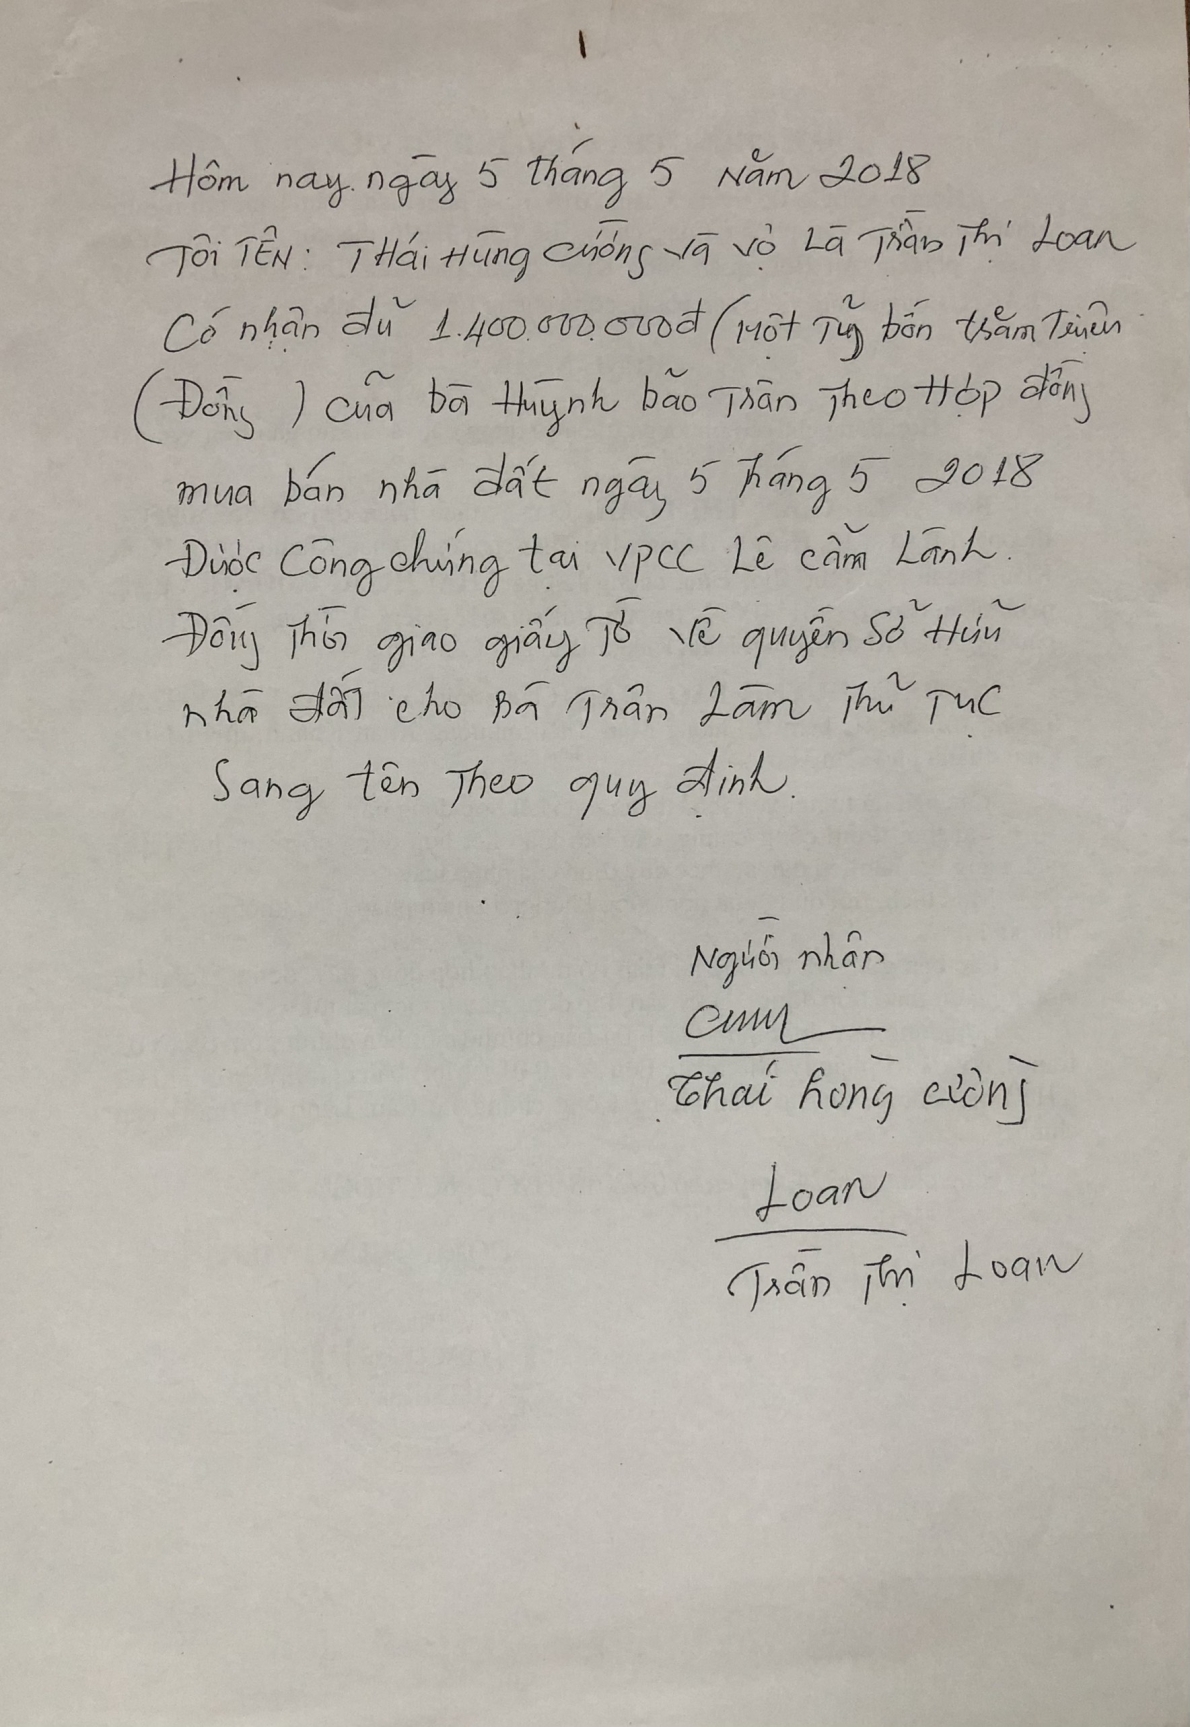 Hôm nay. ngày 5 tháng 5 năm 2018
Tôi TÊN: THái Hùng Cường và vợ Là Trần Thị Loan
Có nhận đủ 1.400.000.000đ (Một Tỷ bốn trăm Triệu
(Đồng) của bà Huỳnh bảo Trân Theo Hợp đồng
mua bán nhà đất ngày 5 Tháng 5 2018
Được Công chứng tại VPCC Lê cẩm Lành.
Đồng Thời giao giấy Tờ Về quyền Sở Hữu
nhà đất cho Bà Trân Làm Thủ Tục
Sang tên Theo quy định.
Người nhận
Thái hồng cường
Loan
Trần Thị Loan